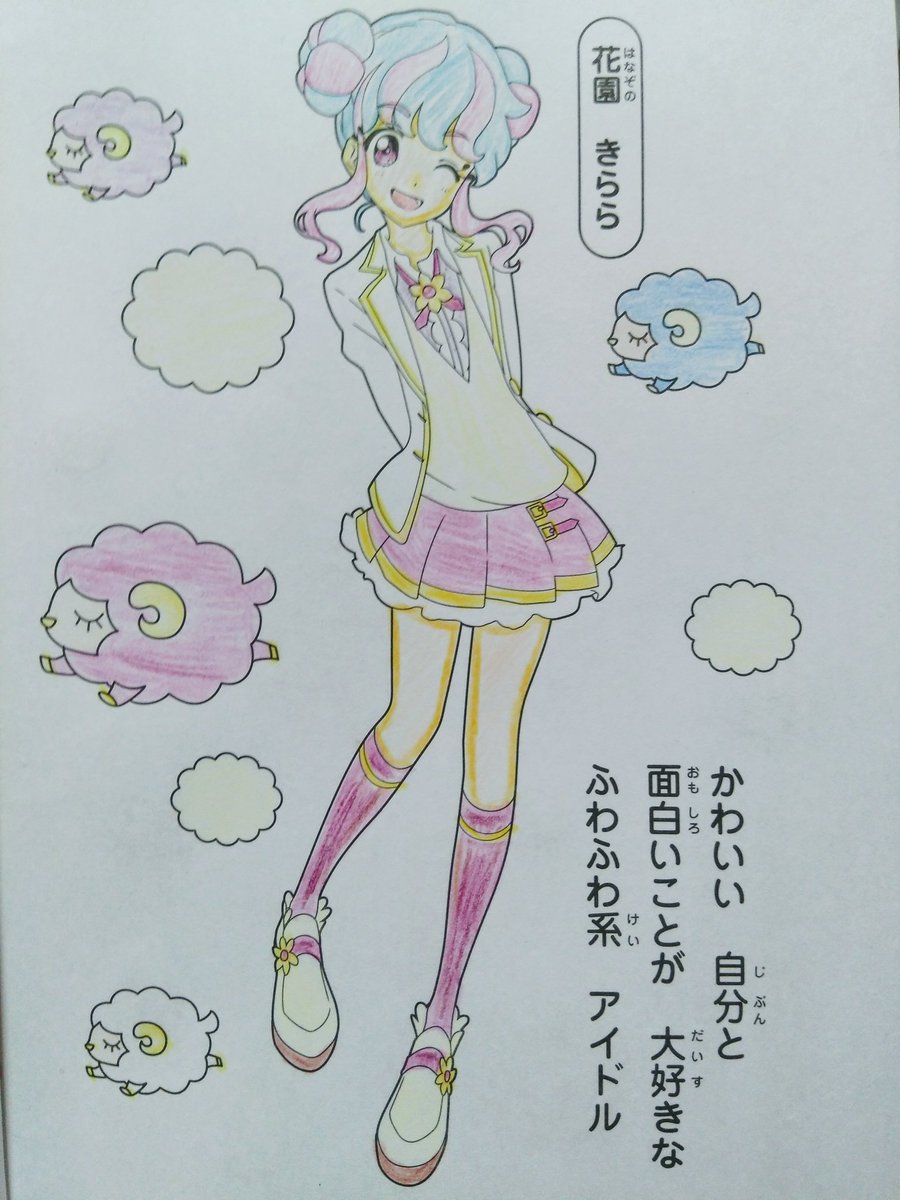 花園 きらら
はなぞの
かわいい 自分と
じぶん
面白いことが 大好きな
おもしろ だいす
ふわふわ系 アイドル
けい